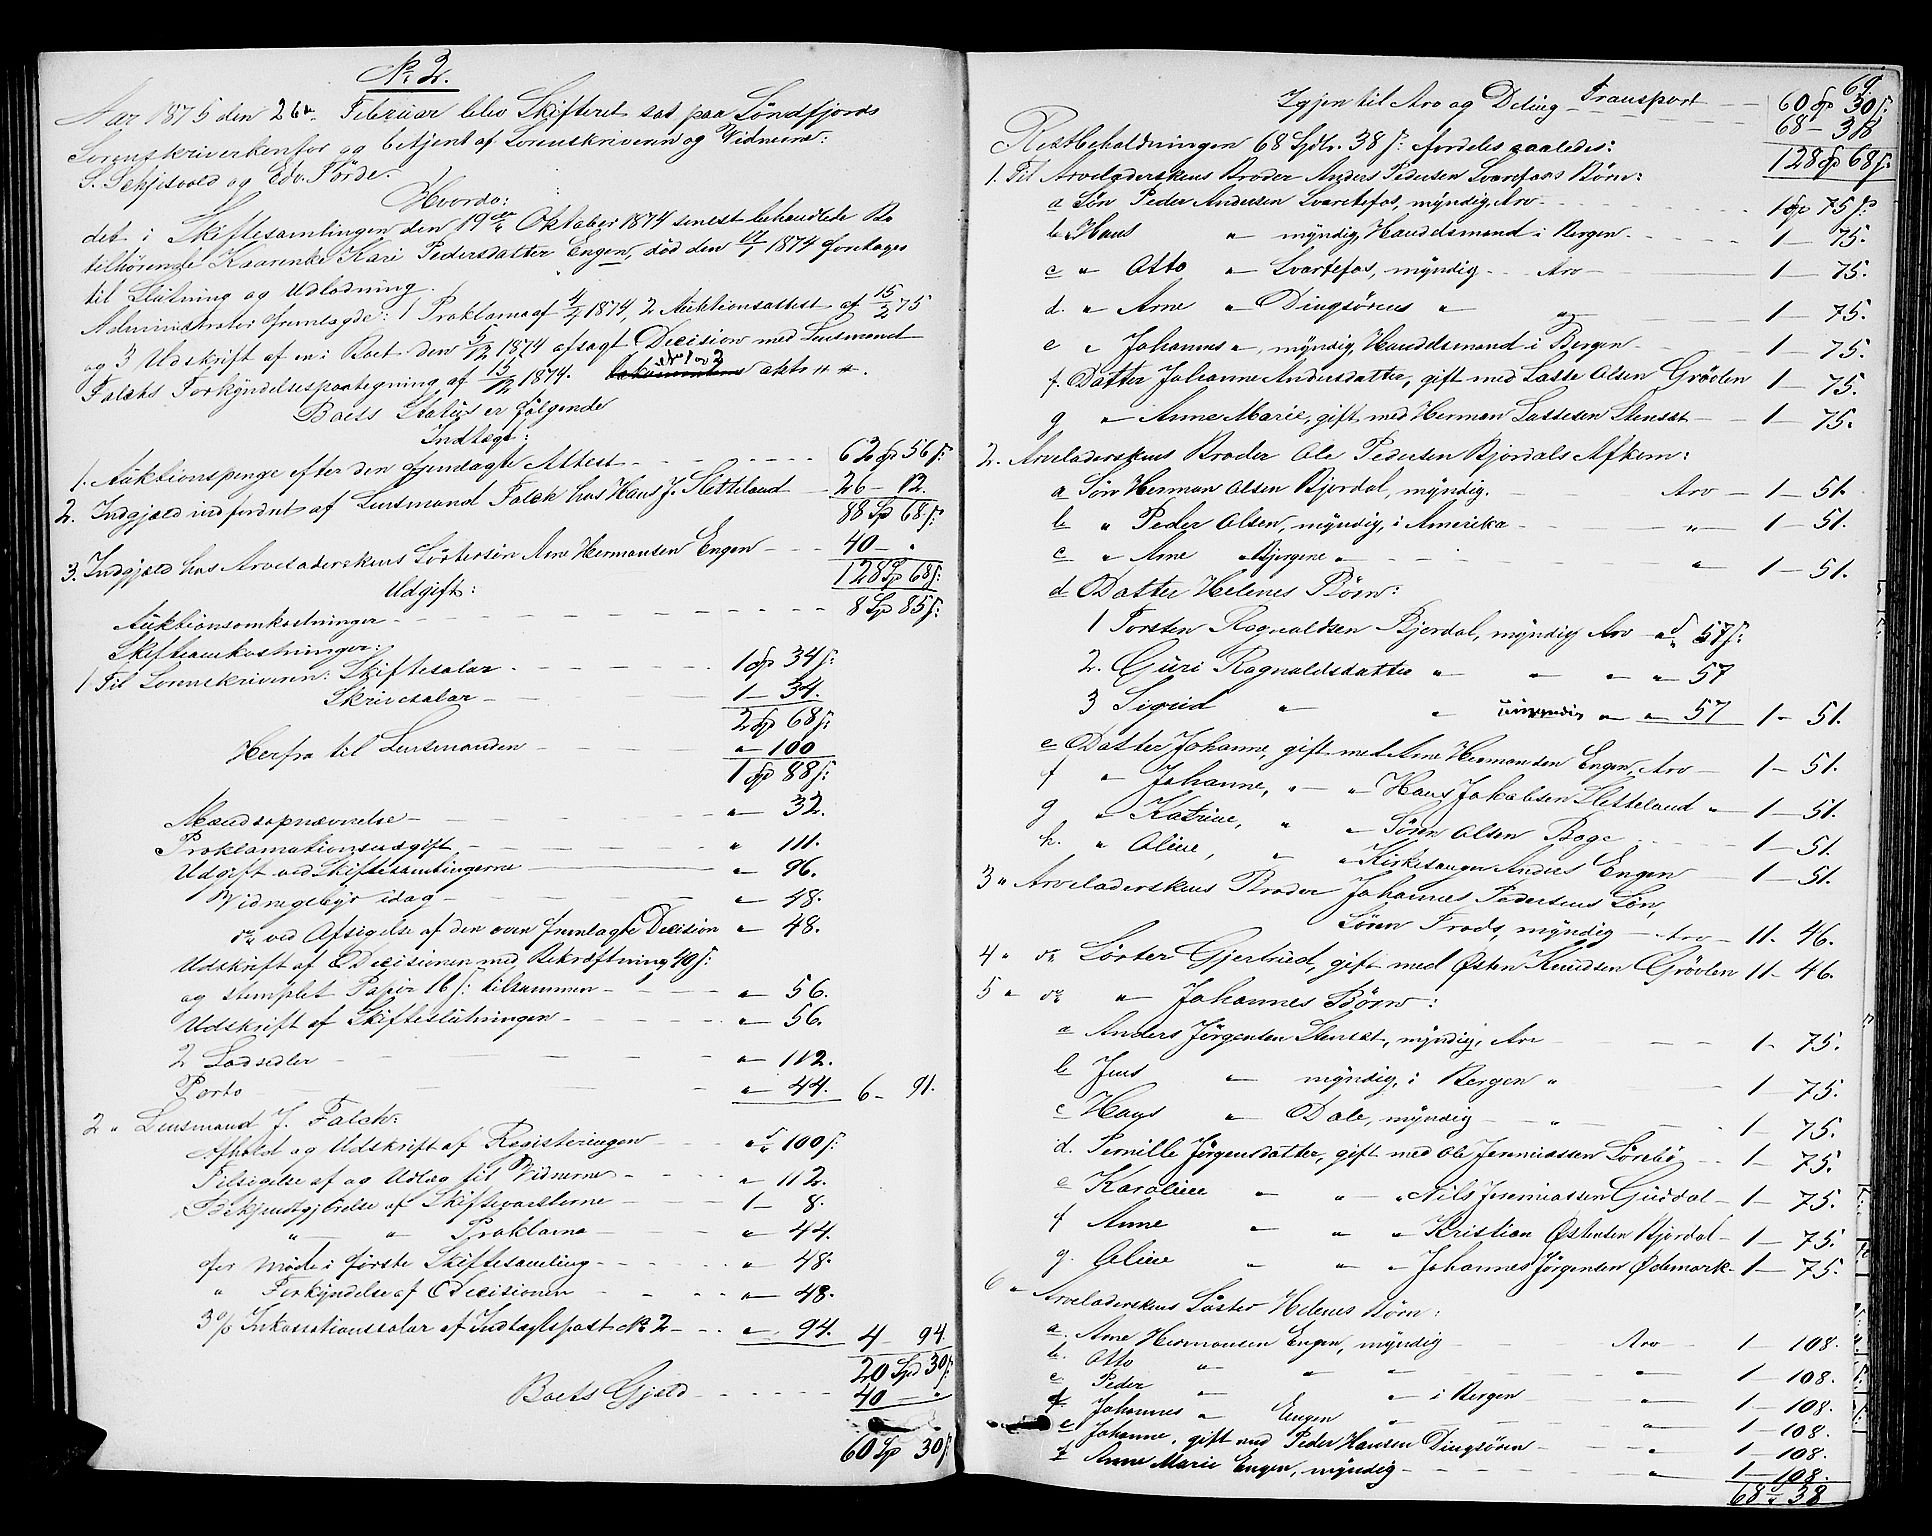 No 2.
Aar 1875 den 26de Februar blev Skifteret sat paa Søndfjords
Sorenskriverkontor og betjent af Sorenskriveren og Vidnerne:
S. Schjelvold og Edv. Førde.
Hvorda:
det i Skiftesamlingen den 19de Oktober 1874 senest behandlede Bo
tilhørende Kaarenke Kari Pedersdatter Engen, død den 1874 foretages
til Slutning og Udlodning.
Administrator fremlagde: 1 Proklama af 1874, 2 Auktionsattest af 15/2 75
og 3 Udskrift af en i Boet den 5/12 1874 afsagt Decision med Lensmand
Falchs Forkyndelsespaategning af 15/12 1874.
Boets Status er følgende
Indtægt:
1. Auktionspenge efter den fremlagte Attest 62 Sp 56 s:
2. Indgjæld indfordret af Lensmand Falch hos Hans J. Sletteland 26 - 12.
88 Sp 68 s:
3. Indgjæld hos Arveladerskens Søstersøn Arne Hermansen Engen 40 - "
128 Sp 68 s:
Udgift:
Auktionsomkostninger 8 Sp 85 s:
Skifteomkostninger:
1 Til Sorenskriveren: Skiftesalar 1 Sp 34 s:
Skrivesalar 1 - 34.
2 Sp 68 s:
Herfra til Lensmanden " 100
1 Sp 88 s:
Mændsopnævnelse " 32.
Proklamationsudgift " 111.
Udgift ved Skiftesamlingerne " 96.
Vidnegebyr idag " 48.
do ved Afsigelse af den oven fremlagte Decision " 48.
Udskrift af Decisionen med Bekræftning 40 s:
og stemplet Papir 16 s: tilsammen " 56.
Udskrift af Skifteslutningen " 56.
2 Lodsedler " 112.
Porto " 44. 6 - 91.
2 " Lensmand J. Falch:
Afhold og Udskrift af Registeringen " 100 s:
Tilsigelse af og Udlæg til Vidnerne " 112.
Bekjendtgjørelse af Skifteposterne 1 - 8.
" " Proklama " 44.
for Møde i første Skiftesamling " 48.
" Forkyndelse af Decisionen " 48.
3 % Inkassationssalar af Indtægtspost No 2 " 94. 4 - 94.
20 Sp 30 s:
Boets Gjæld 40 - "
60 Sp 30 s:
69.
Igjen til Arv og Deling Transport 60 Sp 30 s:
68 - 38
128 Sp 68 s:
Restbeholdningen 68 Spdlr. 38 s: fordeles saaledes:
1. Til Arveladerskens Broder Anders Pedersen Svartefos's Børn:
a Søn Peder Andersen Svartefos, myndig, Arv 1 Sp 75 s:
b Hans " myndig, Handelsmand i Bergen 1 - 75.
c " Otto " Svartefos, myndig Arv 1 - 75.
d. " Arne " Dingsørens " 1 - 75.
e " Johannes ", myndig, Handelsmand i Bergen 1 - 75.
f. Datter Johanne Andersdatter, gift med Lasse Olsen Grøvlen 1 - 75.
g " Anne Marie, gift med Herman Lassesen Stensæt 1 - 75.
2. Arveladerskens Broder Ole Pedersen Bjørdals Afkom:
a Søn Herman Olsen Bjordal, myndig. Arv 1 - 51.
b " Peder Olsen, myndig, i Amerika " 1 - 51.
c " Arne " Bjergene " " 1 - 51.
d Datter Helenes Børn:
1 Torsten Rognaldsen Bjordal, myndig Arv 57 s:
2. Guri Rognaldsdatter " " " " 57
3 Sigrid " " umyndig " " 57 1 - 51.
e Datter Johanne, gift med Arne Hermansen Engen, Arv 1 - 51.
f " Johanne, " " Hans Jakobsen Sletteland " 1 - 51.
g " Katrine, " " Søren Olsen Boge 1 - 51.
h. " Oline, " " Kirkesanger Anders Engen 1 - 51.
3 " Arveladerskens Broder Johannes Pedersens Søn,
Søren Frods, myndig Arv 11. 46.
4 " do Søster Gjertrud, gift med Østen Knudsen Grøvlen 11 - 46.
5 " do " Johannes Børn:
a Anders Jørgensen Stensæt, myndig, Arv 1 - 75.
b Jens " myndig, i Bergen " 1 - 75.
c Hans " Dale, myndig " 1 - 75.
d. Pernille Jørgensdatter, gift med Ole Jeremiassen Sørebø 1 - 75.
e Karoline " " " Nils Jeremiassen Guddal 1 - 75.
f Anne " " " Kristian Østensen Bjørdal 1 - 75.
g. Oline " " " Johannes Jørgensen Ødemark 1 - 75.
6 " Arveladerskens Søster Helenes Børn:
a. Arne Hermansen Engen, myndig Arv 1 - 108.
b. Otto " " " 1 - 108.
c Peder " " i Bergen " 1 - 108.
d Johannes " Engen " " 1 - 108.
e Johanne, gift med Peder Hansen Dingsøren " 1 - 108.
f Anne Marie Engen, myndig " 1 - 108.
68 - 38